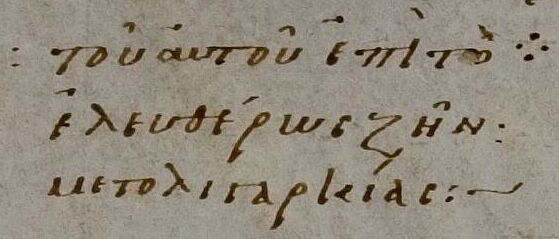 : τοῦ αυτοῦ ἐπὶ τὸ ⁘
ἐλευθέρως ζῆν :
μετολιγαρκείας :~